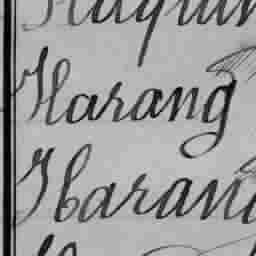 Harang
Harang